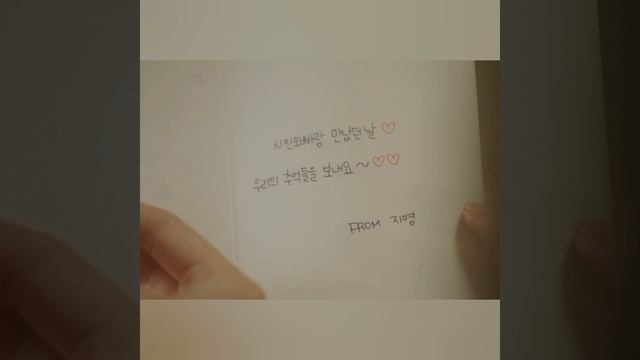 시진오빠랑 만났던 날 ♡
우리의 추억들을 보내요~♡♡
FROM 지영